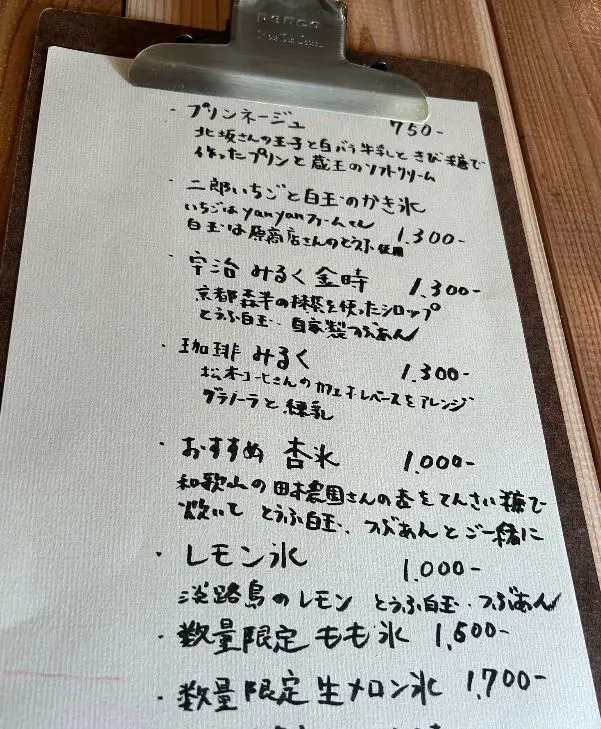 ・プリンネージュ 750-
北坂さんの玉子と白バラ牛乳ときび糖で
作ったプリンと蔵王のソフトクリーム
・二郎いちごと白玉のかき氷
いちごはyanyanファームさん 1,300-
白玉は原商店さんのとうふ使用
・宇治みるく金時 1,300-
京都森半の抹茶を使ったシロップ
とうふ白玉、自家製つぶあん
・珈琲みるく 1,300-
松本コーヒーさんのカフェオレベースをアレンジ
グラノーラと練乳
・おすすめ 杏氷 1,000-
和歌山の田村農園さんの杏をてんさい糖で
炊いて とうふ白玉、つぶあんとご一緒に
・レモン氷 1,000-
淡路島のレモン とうふ白玉、つぶあん
・数量限定 もも氷 1,600-
・数量限定 生メロン氷 1,700-